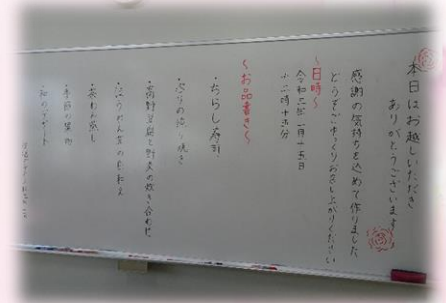 本日はお越しいただき
ありがとうございます
感謝の気持ちを込めて作りました
どうぞごゆっくりお召し上がりください
～日時～
令和三年一月十五日
十二時十五分
～お品書き～
・ちらし寿司
・高野豆腐と野菜の炊き合わせ
・ほうれん草の白和え
・茶わん蒸し
・季節の果物
・和のデザート